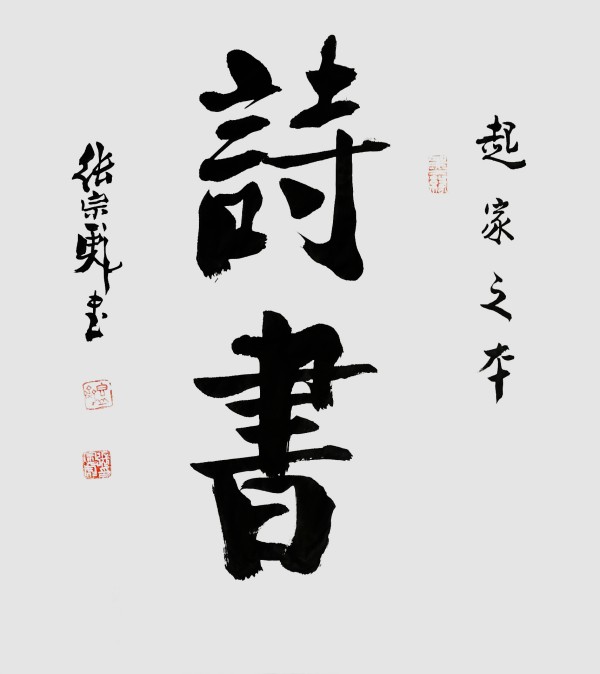 起家之本
詩書
張宗彪書